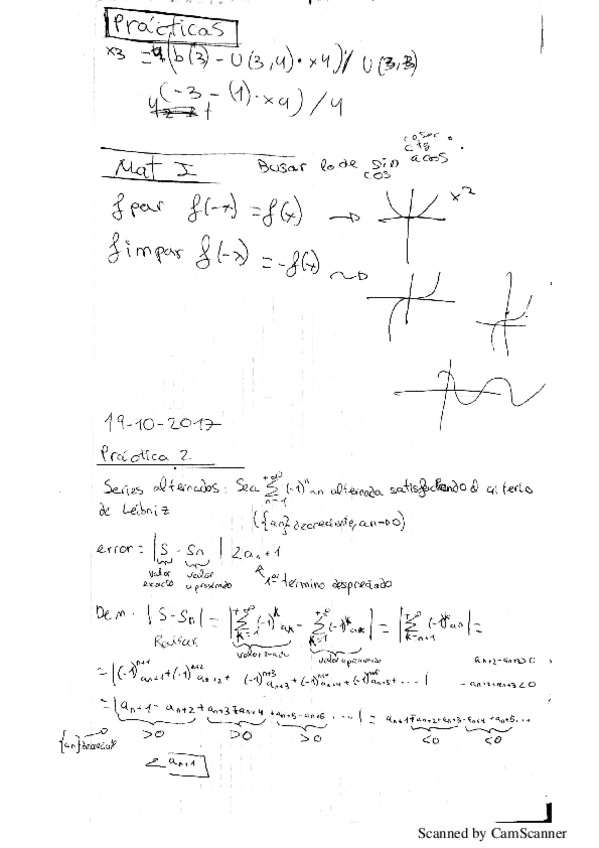 Prácticas
x3 = (b(3) - U(3,4) · x4) / U(3,3)
(-3 - (1) · x4) / 4
Mat I Busar lo de sin cos acos
f par f(-x) = f(x) → x^2
f impar f(-x) = -f(x) →
19-10-2017
Práctica 2
Series alternados: Sea Σ_{n=1}^{+∞} (-1)^n an alternada satisfaciendo el criterio
de Leibniz ({an} decreciente, an→0)
error = | S - Sn | < an+1
valor exacto valor aproximado 1er término despreciado
Dem. |S-Sn| = |Σ_{k=1}^{+∞} (-1)^k ak - Σ_{k=1}^{n} (-1)^k ak| = |Σ_{k=n+1}^{+∞} (-1)^k ak| =
Revisar valor exacto valor aproximado
= |(-1)^{n+1} an+1 + (-1)^{n+2} an+2 + (-1)^{n+3} an+3 + (-1)^{n+4} an+4 + (-1)^{n+5} an+5 + ... |
= |an+1 - an+2 + an+3 - an+4 + an+5 - an+6 ... | = an+1 - an+2 + an+3 - an+4 + an+5 ...
{an} decreciente >0 >0 >0 <0 <0
< an+1
Scanned by CamScanner